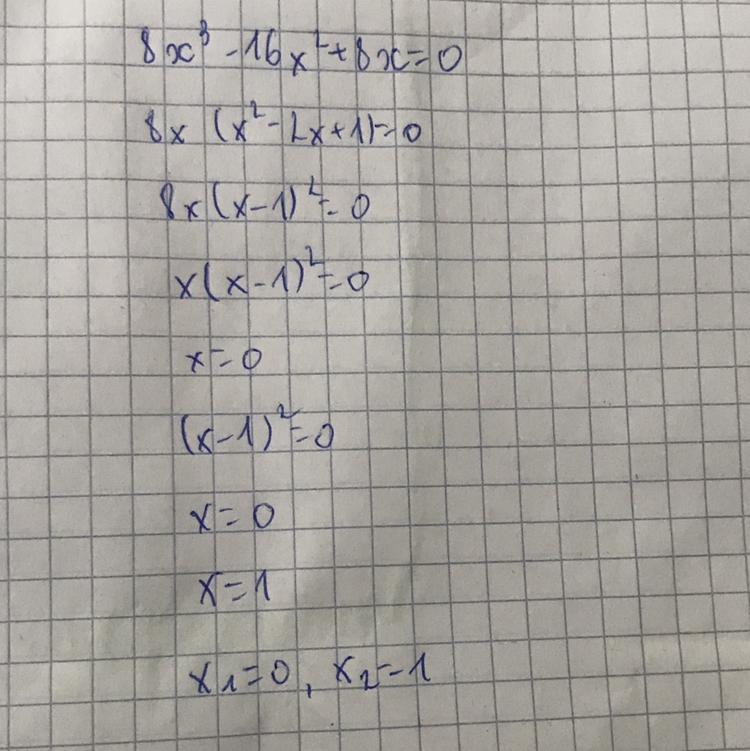 8x³ - 16x² + 8x = 0
8x (x² - 2x + 1) = 0
8x (x - 1)² = 0
x (x - 1)² = 0
x = 0
(x - 1)² = 0
x = 0
x = 1
x₁ = 0, x₂ = 1